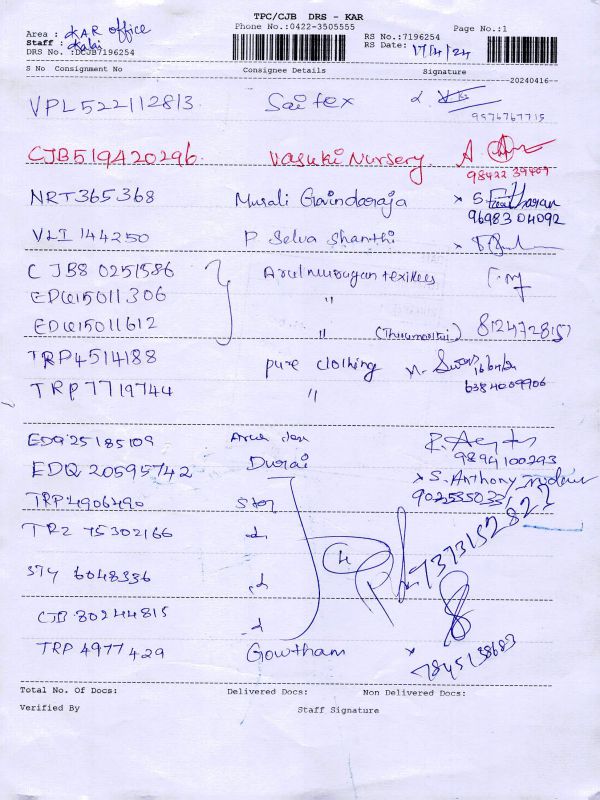 TPC/CJB DRS - KAR
Phone No.:0422-3505555
Page No.:1
Area : KAR office
Staff : Kalai
DRS No. :DCJB7196254
RS No.:7196254
RS Date: 17/4/24
S No Consignment No Consignee Details Signature
20240416
VPL522112813 Saitex
9576767715
CJB519420296 Vasuki Nursery A.
98422 39409
NRT365368 Murali Govindaraja x S.
96983 04092
VLI 144250 P Selva Shanthi x
CJB80251586 Arulmurugan texitlees
EDQ15011306 "
EDQ15011612 " (Thirumoorthi) 8124728151
TRP4514188 pure clothing
TRP7719744 " 6384009906
EDQ25185109 Arun
9894100293
EDQ 20595742 Durai x S. Anthony
TRP4906490 Star 902535033
TRZ 75302166 7373152822
STY 6048336
CJB 80244815
TRP 4977429 Gowtham x 7845138683
Total No. Of Docs: Delivered Docs: Non Delivered Docs:
Verified By Staff Signature